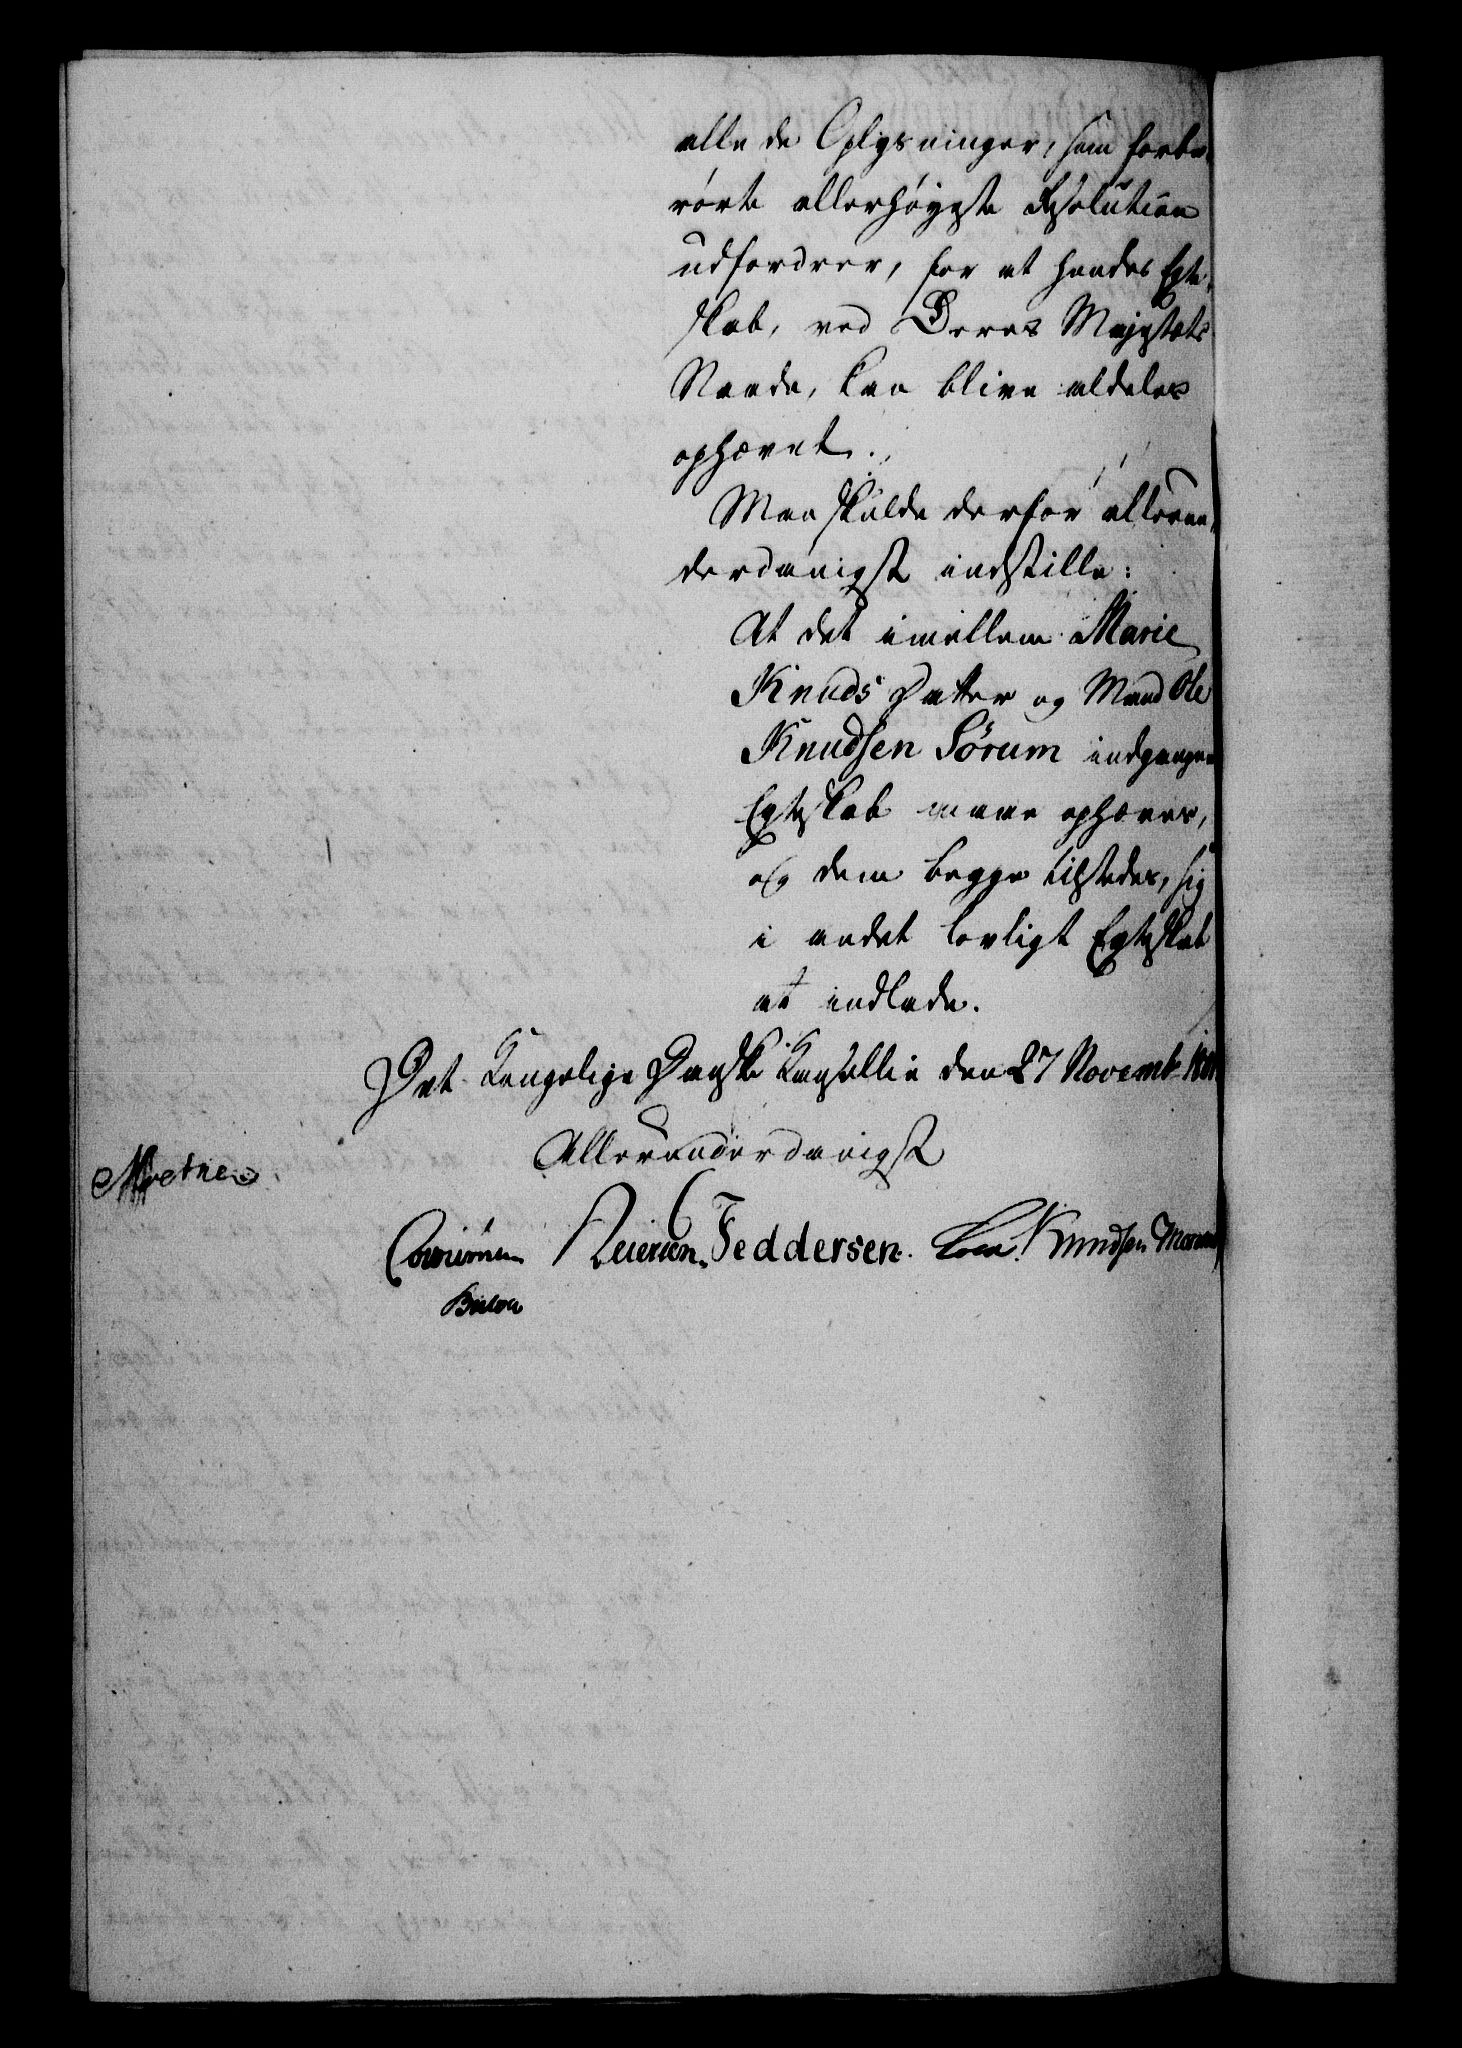 alle de Oplysninger, som forbe-
rörte allerhöygste Resolution
udfordrer, for at hendes Egte-
skab, ved Deres Majestæts
Naade, kan blive aldeles
ophævet.
Man skulde derfor allerun-
derdanigst indstille:
At det imellem Marie
Knuds Datter og Mand Ole
Knudsen Sørum indgangne
Egteskab maae ophæves,
og dem begge tilstedes, sig
i andet lovligt Egteskab
at indlade.
Det Kongelige Danske Kancellie den 27 Novemb.
Allerunderdanigst
Feddersen. Knudsen
Bülow